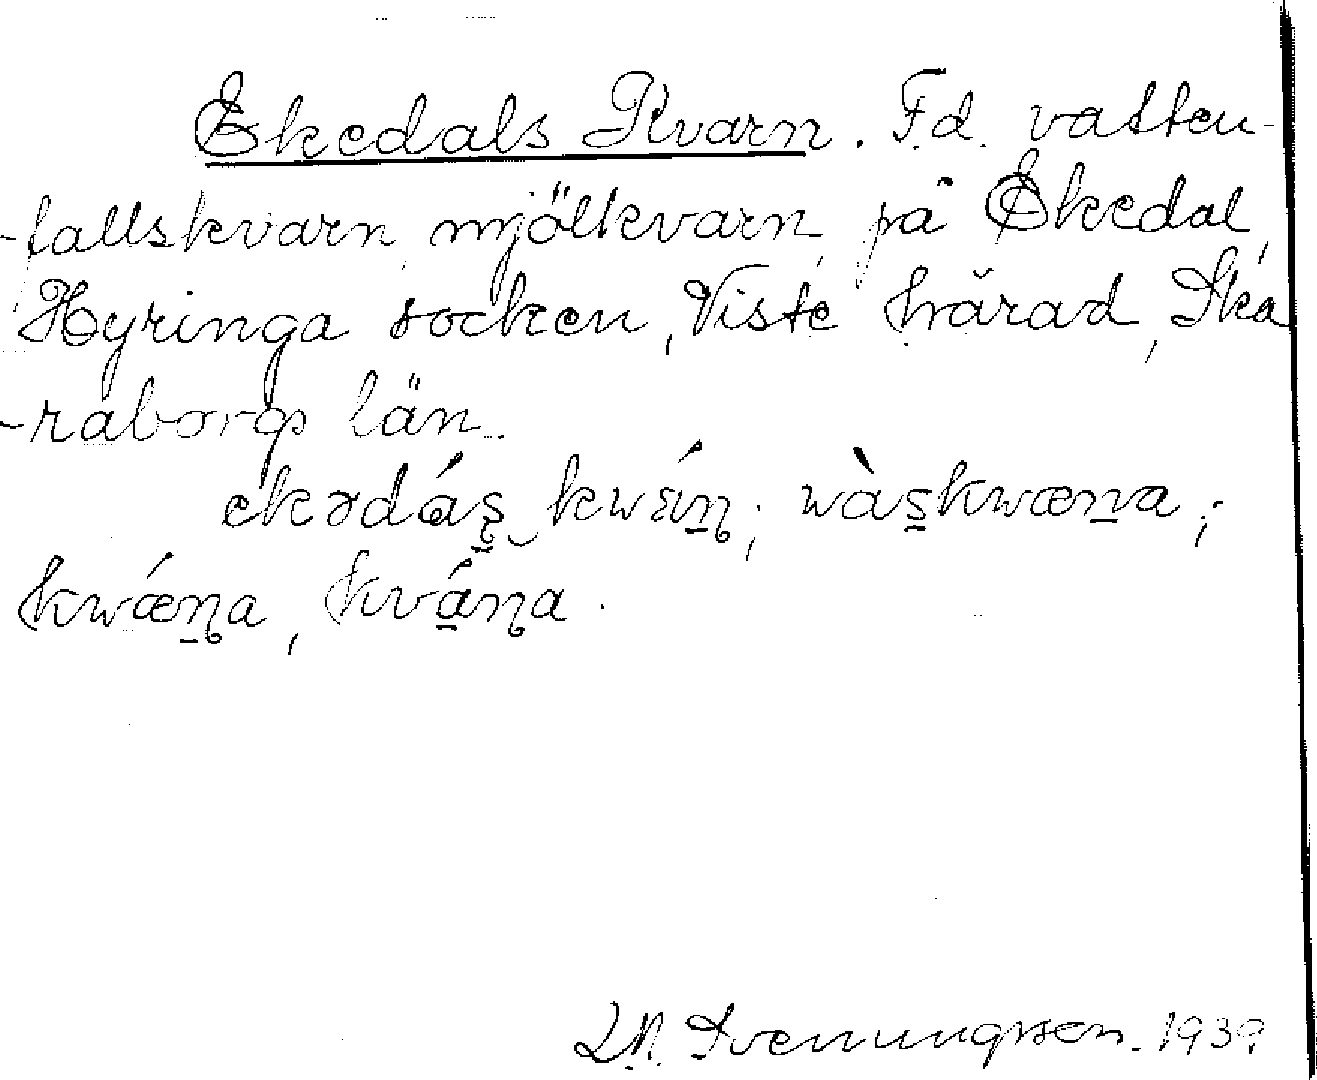 Ekedals Kvarn. F.d. vatten-
-fallskvarn, mjölkvarn, på Ekedal,
Hyringa socken, Viste härad, Ska
-raborgs län.
ekədáʂ kwǽɳ; wàʂkwæɳa;
kwǽɳa, kváɳa.
L.N. Svenungsson. 1939